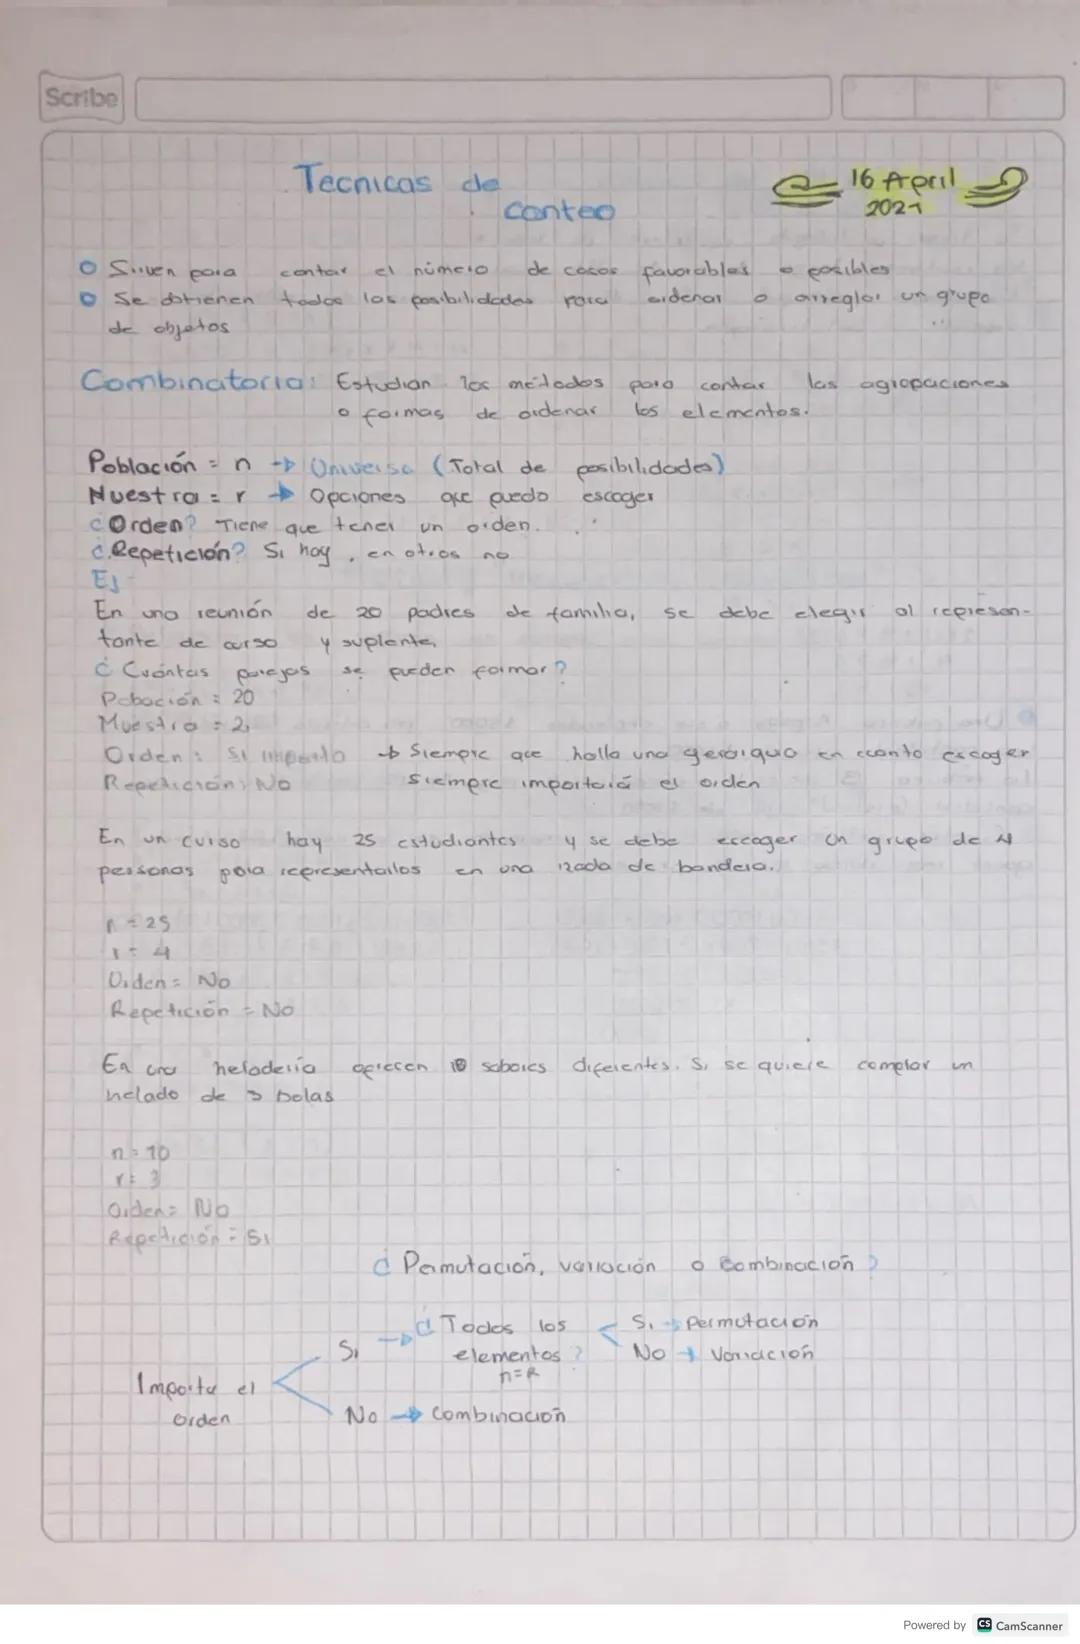 Scribe
Tecnicas de
conteo
16 April
2021
Sirven para contar el número de casos favorables o posibles
Se obtienen todas las posibilidades para ordenar o arreglar un grupo
de objetos
Combinatoria: Estudian los métodos para contar las agrupaciones
o formas de ordenar los elementos.
Población = n → Universo (Total de posibilidades)
Muestra = r → Opciones que puedo escoger
¿Orden? Tiene que tener un orden.
¿Repetición? Si hay, en otros no
Ej
En una reunión de 20 padres de familia, se debe elegir al represen-
tante de curso y suplente,
¿Cuántas parejas se pueden formar?
Pobación = 20
Muestra = 2,
Orden: Si importa → Siempre que halla una gerarquia en cuanto escoger
Repetición: No siempre importará el orden
En un curso hay 25 estudiantes y se debe escoger un grupo de 4
personas para representarlos en una izada de bandera.
n = 25
r = 4
Orden = No
Repetición = No
En una heladeria ofrecen 10 sabores diferentes. Si se quiere comprar un
helado de 3 bolas
n = 10
r = 3
Orden = No
Repetición = Si
¿Permutación, variación o combinación?
Si → ¿Todos los Si → Permutación
elementos? No → Variación
n=R
Importa el
orden
No → Combinación
Powered by CS CamScanner